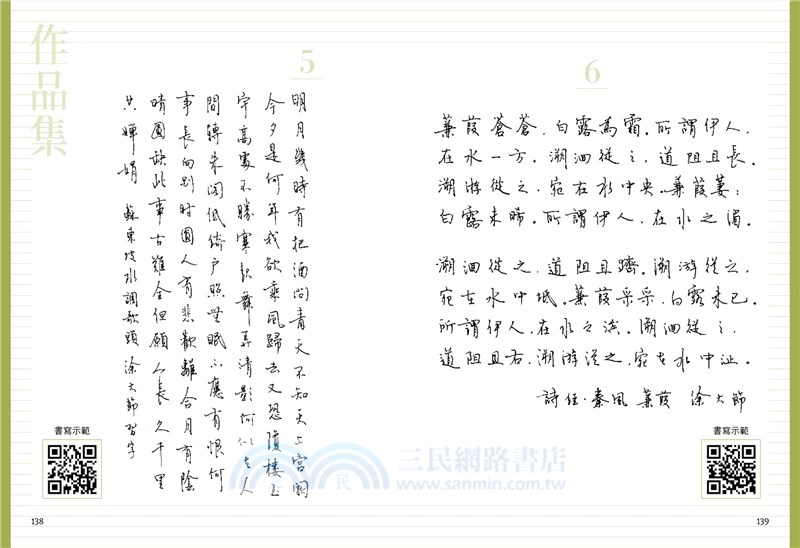 作品集
5
明月幾時有把酒問青天不知天上宮闕
今夕是何年我欲乘風歸去又恐瓊樓玉
宇高處不勝寒起舞弄清影何似在人
間轉朱閣低綺戶照無眠不應有恨何
事長向別時圓人有悲歡離合月有陰
晴圓缺此事古難全但願人長久千里
共嬋娟 蘇東坡水調歌頭 涂大節習字
書寫示範
138
6
蒹葭蒼蒼,白露為霜。所謂伊人,
在水一方。溯洄從之,道阻且長。
溯游從之,宛在水中央。蒹葭萋萋,
白露未晞。所謂伊人,在水之湄。
溯洄從之,道阻且躋。溯游從之,
宛在水中坻。蒹葭采采,白露未已。
所謂伊人,在水之涘。溯洄從之,
道阻且右,溯游從之,宛在水中沚。
詩經·秦風 蒹葭 涂大節
書寫示範
139
三民網路書店
www.sanmin.com.tw